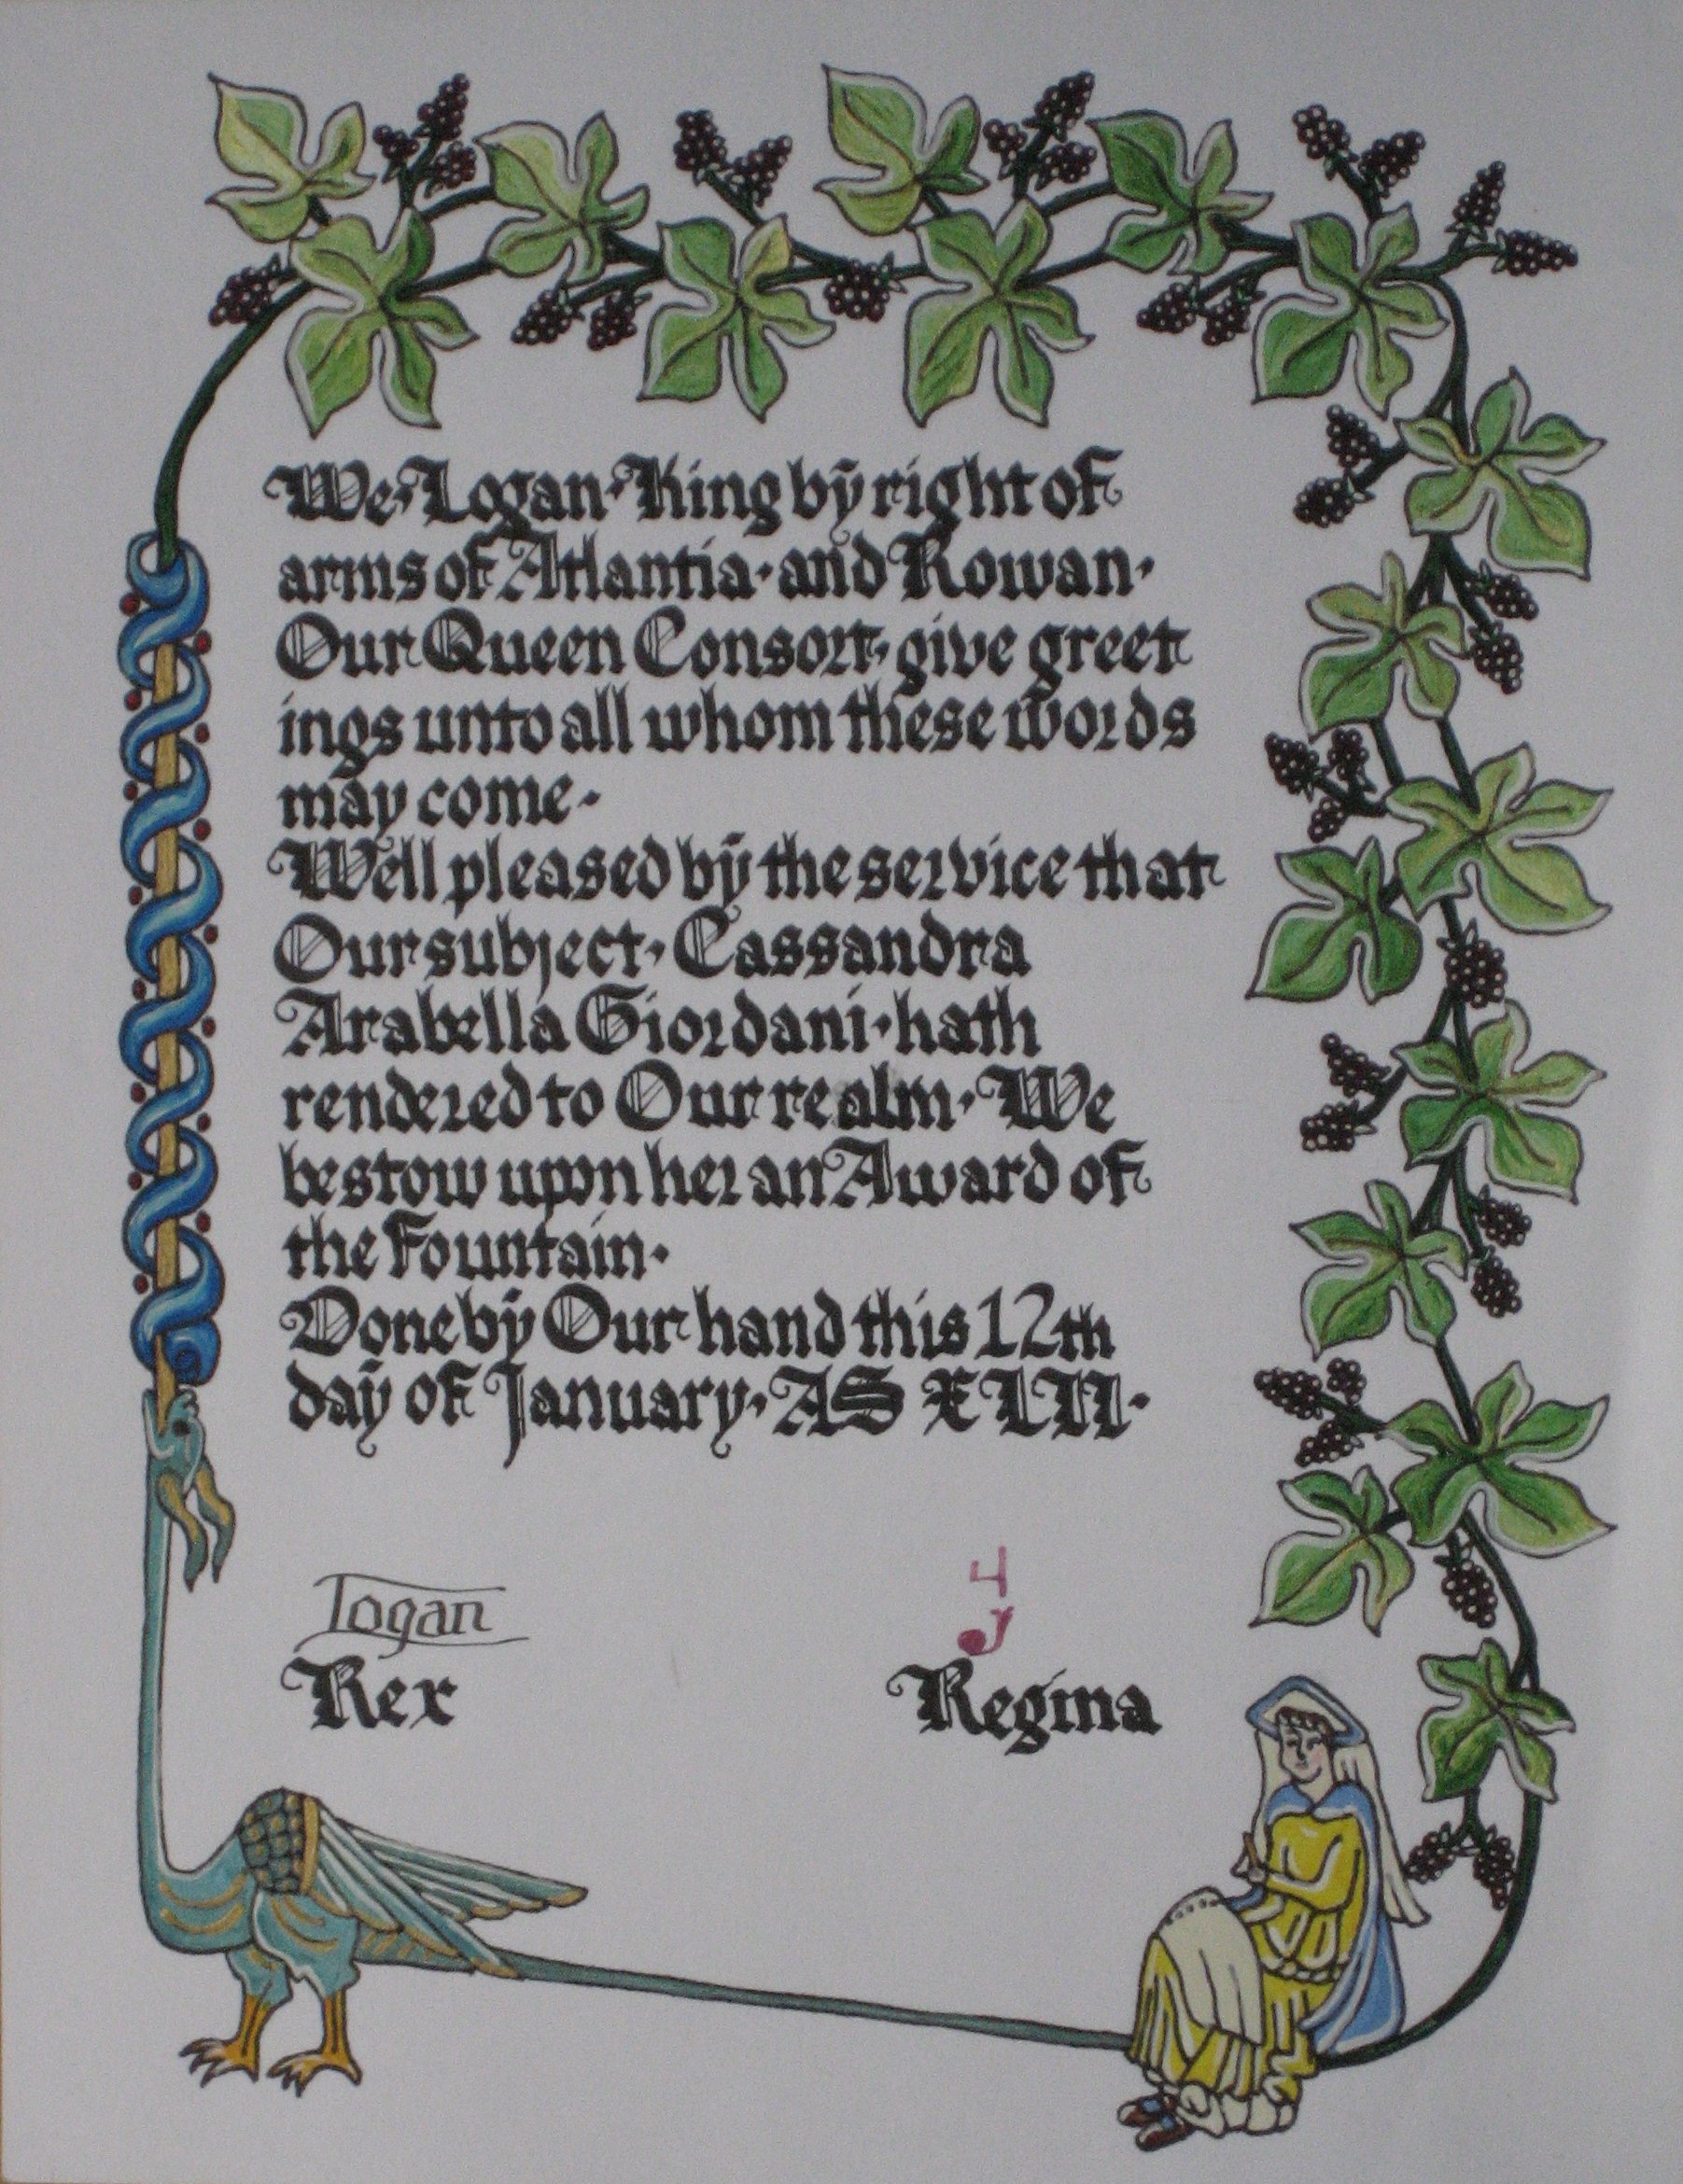 We·Logan·King by right of
arms of Atlantia·and Rowan·
Our Queen Consort·give greet
ings unto all whom these words
may come·
Well pleased by the service that
Our subject·Cassandra
Arabella Giordani·hath
rendered to Our realm·We
bestow upon her an Award of
the Fountain·
Done by Our hand this 12th
day of January·AS XLII·
Logan
Rex
Regina